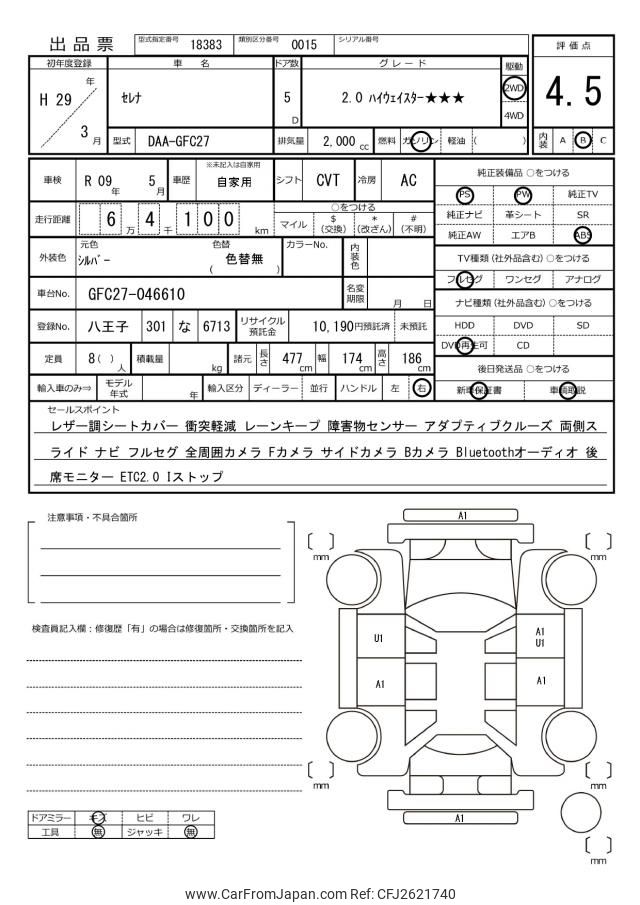 出品票 型式指定番号 18383 類別区分番号 0015 シリアル番号
評価点
4.5
内装 A B C
初年度登録 車名 ドア数 グレード 駆動
H 29 年 3 月
セレナ
5 D
2.0 ハイウェイスター★★★
2WD
4WD
型式 DAA-GFC27 排気量 2,000 cc 燃料 ガソリン 軽油 ( )
車検 R 09 年 5 月 車歴 ※未記入は自家用 自家用 シフト CVT 冷房 AC
走行距離 6 万 4 千 1 0 0 km
○をつける
マイル $(交換) *(改ざん) #(不明)
外装色 元色 シルバー 色替 ( 色替無 ) カラーNo. 内装色
車台No. GFC27-046610 名変期限 月 日
登録No. 八王子 301 な 6713 リサイクル預託金 10,190円預託済 未預託
定員 8 ( ) 人 積載量 kg 諸元 長さ 477 cm 幅 174 cm 高さ 186 cm
輸入車のみ⇒ モデル年式 年 輸入区分 ディーラー ・ 並行 ハンドル 左 ・ 右
純正装備品 ○をつける
PS PW 純正TV
純正ナビ 革シート SR
純正AW エアB ABS
TV種類(社外品含む) ○をつける
フルセグ ワンセグ アナログ
ナビ種類(社外品含む) ○をつける
HDD DVD SD
DVD再生可 CD
後日発送品 ○をつける
新車保証書 車輌取説
セールスポイント
レザー調シートカバー 衝突軽減 レーンキープ 障害物センサー アダプティブクルーズ 両側ス
ライド ナビ フルセグ 全周囲カメラ Fカメラ サイドカメラ Bカメラ Bluetoothオーディオ 後
席モニター ETC2.0 Iストップ
注意事項・不具合箇所
検査員記入欄：修復歴「有」の場合は修復箇所・交換箇所を記入
A1
mm
mm
U1
A1
U1
A1
A1
mm
mm
A1
mm
ドアミラー キズ ヒビ ワレ
工具 無 ジャッキ 無
www.CarFromJapan.com Ref: CFJ2621740